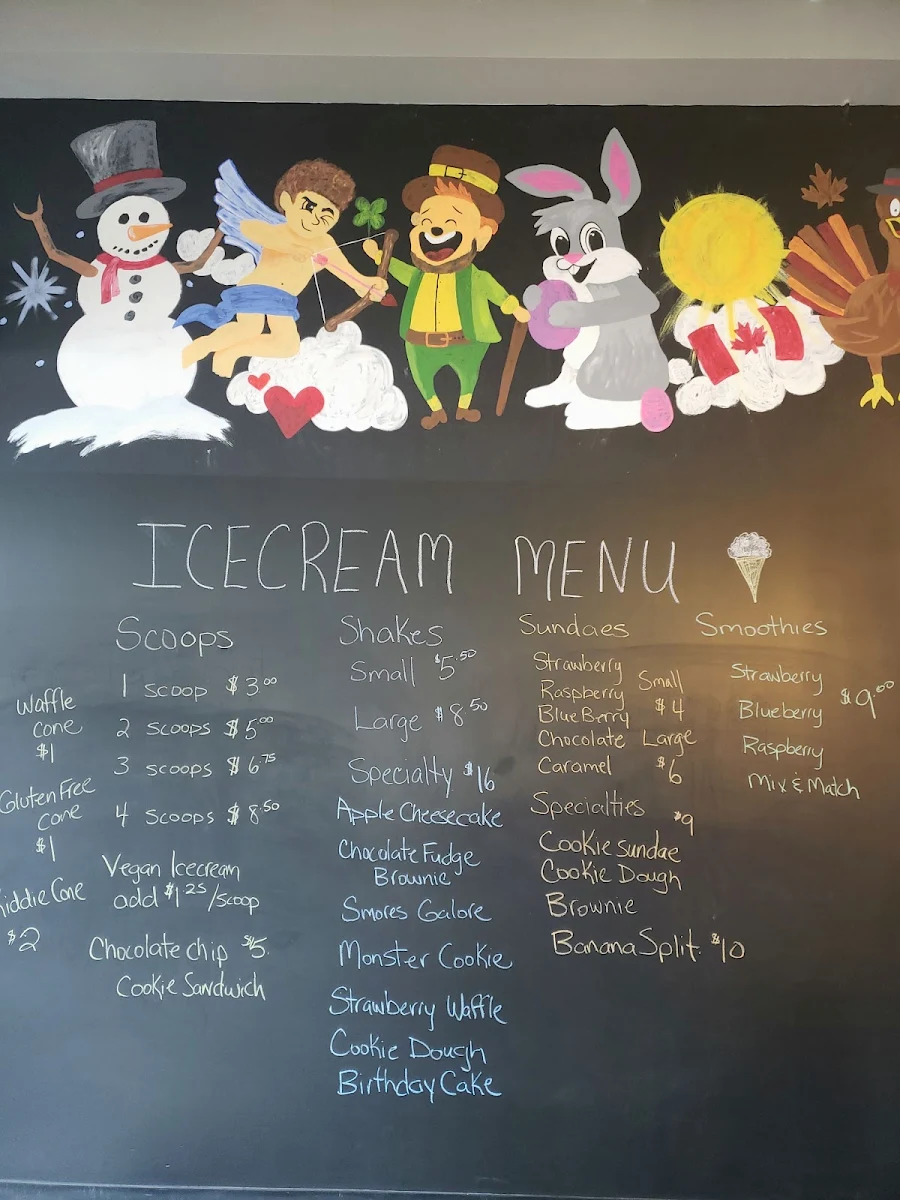 ICECREAM MENU
Scoops
1 scoop $3.00
2 scoops $5.00
3 scoops $6.75
4 scoops $8.50
Vegan Icecream
add $1.25/scoop
Chocolate chip $5.
Cookie Sandwich
Waffle
cone
$1
Gluten Free
cone
$1
Kiddie Cone
$2
Shakes
Small $5.50
Large $8.50
Specialty $16
Apple Cheesecake
Chocolate Fudge
Brownie
Smores Galore
Monster Cookie
Strawberry Waffle
Cookie Dough
Birthday Cake
Sundaes
Strawberry
Raspberry
BlueBerry
Chocolate
Caramel
Small
$4
Large
$6
Specialties $9
Cookie sundae
Cookie Dough
Brownie
Banana Split $10
Smoothies
Strawberry
Blueberry
Raspberry
Mix & Match
$9.00